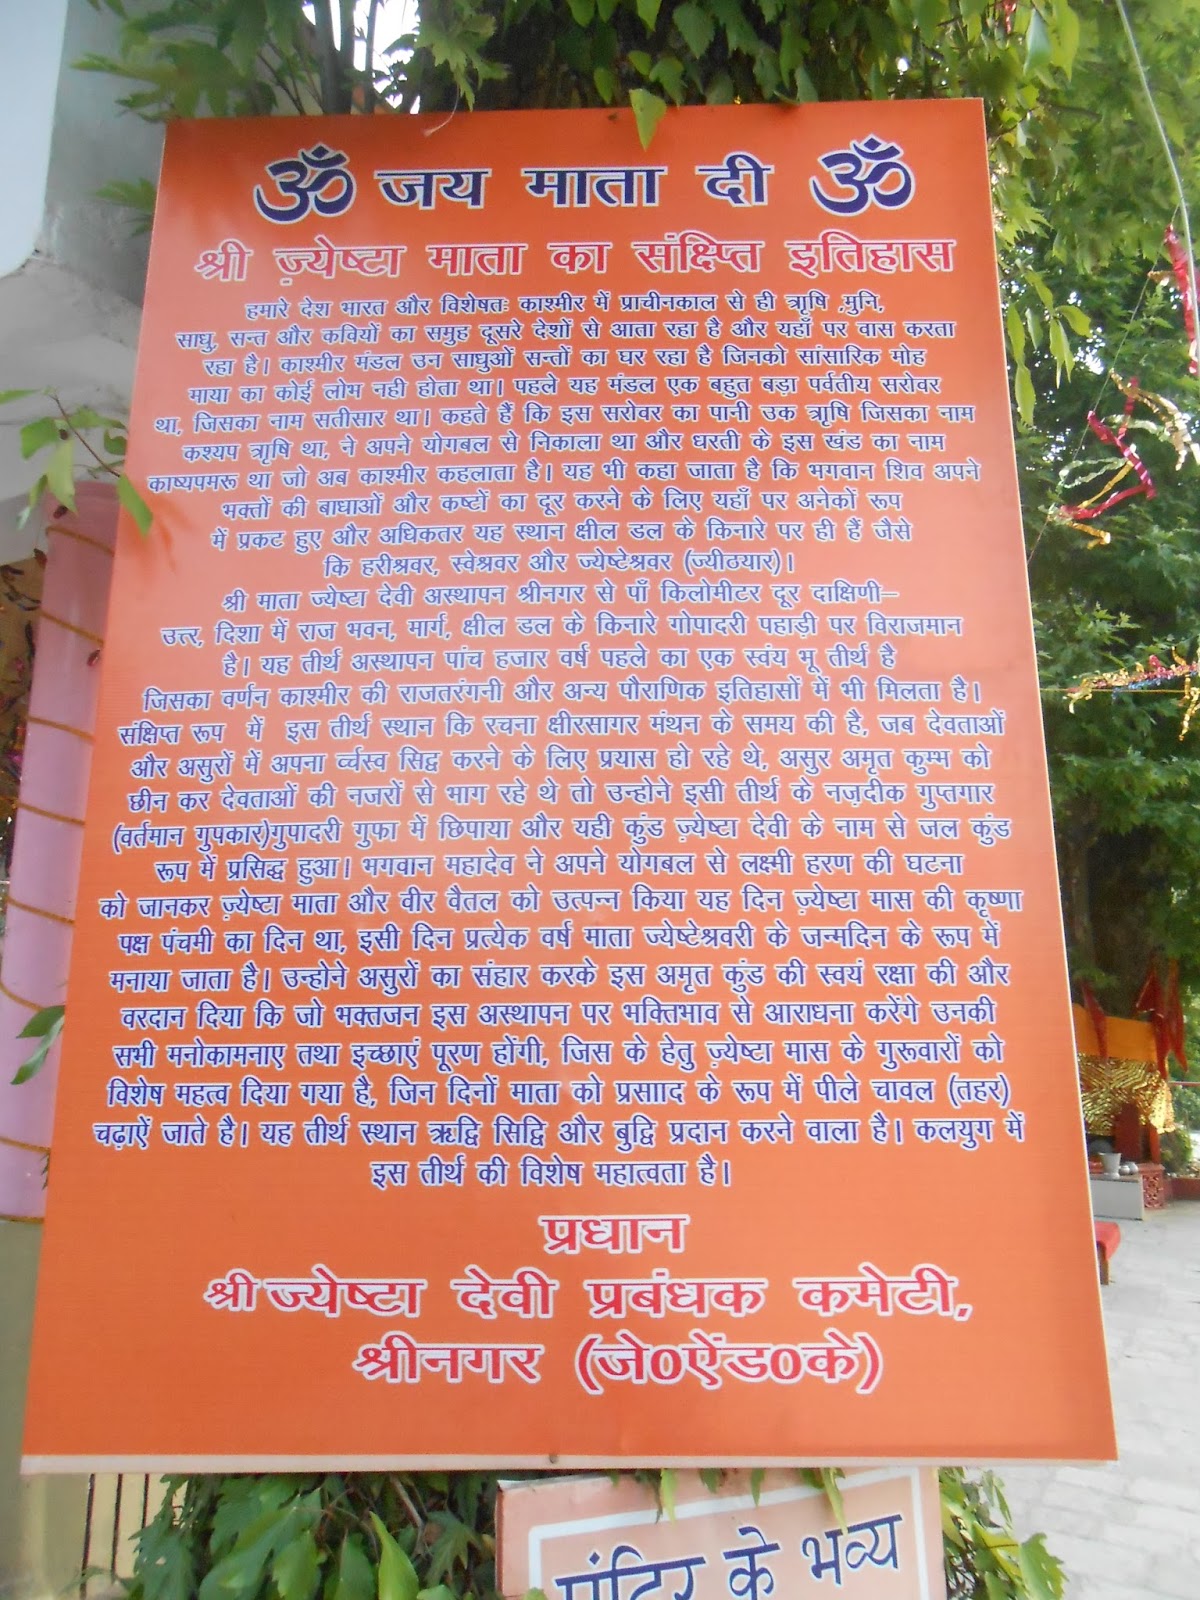 ॐ जय माता दी ॐ
श्री ज़्येष्टा माता का संक्ष्प्ति इतिहास
हमारे देश भारत और विशेषतः काश्मीर में प्राचीनकाल से ही ऋषि ,मुनि,
साधु, सन्त और कवियों का समुह दूसरे देशों से आता रहा है और यहाँ पर वास करता
रहा है। काश्मीर मंडल उन साधुओं सन्तों का घर रहा है जिनको सांसारिक मोह
माया का कोई लोभ नही होता था। पहले यह मंडल एक बहुत बड़ा पर्वतीय सरोवर
था, जिसका नाम सतीसार था। कहते हैं कि इस सरोवर का पानी उक ऋषि जिसका नाम
कश्यप ऋषि था, ने अपने योगबल से निकाला था और धरती के इस खंड का नाम
काष्यपमरू था जो अब काश्मीर कहलाता है। यह भी कहा जाता है कि भगवान शिव अपने
भक्तों की बाधाओं और कष्टों का दूर करने के लिए यहाँ पर अनेकों रूप
में प्रकट हुए और अधिकतर यह स्थान क्षील डल के किनारे पर ही हैं जैसे
कि हरीश्रवर, स्वेश्रवर और ज्येष्टेश्रवर (ज्यीठयार)।
श्री माता ज्येष्टा देवी अस्थापन श्रीनगर से पाँ किलोमीटर दूर दाक्षिणी–
उत्त्र, दिशा में राज भवन, मार्ग, क्षील डल के किनारे गोपादरी पहाड़ी पर विराजमान
है। यह तीर्थ अस्थापन पांच हजार वर्ष पहले का एक स्वंय भू तीर्थ है
जिसका वर्णन काश्मीर की राजतरंगनी और अन्य पौराणिक इतिहासों में भी मिलता है।
संक्षिप्त रूप में इस तीर्थ स्थान कि रचना क्षीरसागर मंथन के समय की है, जब देवताओं
और असुरों में अपना र्व्चस्व सिद्व करने के लिए प्रयास हो रहे थे, असुर अमृत कुम्भ को
छीन कर देवताओं की नजरों से भाग रहे थे तो उन्होने इसी तीर्थ के नज़दीक गुप्तगार
(वर्तमान गुपकार)गुपादरी गुफा में छिपाया और यही कुंड ज़्येष्टा देवी के नाम से जल कुंड
रूप में प्रसिद्ध हुआ। भगवान महादेव ने अपने योगबल से लक्ष्मी हरण की घटना
को जानकर ज़्येष्टा माता और वीर वैतल को उत्पन्न किया यह दिन ज़्येष्टा मास की कृष्णा
पक्ष पंचमी का दिन था, इसी दिन प्रत्येक वर्ष माता ज्येष्टेश्रवरी के जन्मदिन के रूप में
मनाया जाता है। उन्होने असुरों का संहार करके इस अमृत कुंड की स्वयं रक्षा की और
वरदान दिया कि जो भक्तजन इस अस्थापन पर भक्तिभाव से आराधना करेंगे उनकी
सभी मनोकामनाए तथा इच्छाएं पूरण होंगी, जिस के हेतु ज़्येष्टा मास के गुरूवारों को
विशेष महत्व दिया गया है, जिन दिनों माता को प्रसााद के रूप में पीले चावल (तहर)
चढ़ाऐं जाते है। यह तीर्थ स्थान ऋद्वि सिद्वि और बुद्वि प्रदान करने वाला है। कलयुग में
इस तीर्थ की विशेष महात्वता है।
प्रधान
श्री ज्येष्टा देवी प्रबंधक कमेटी,
श्रीनगर (जे0ऐंड0के)
मंदिर के भव्य